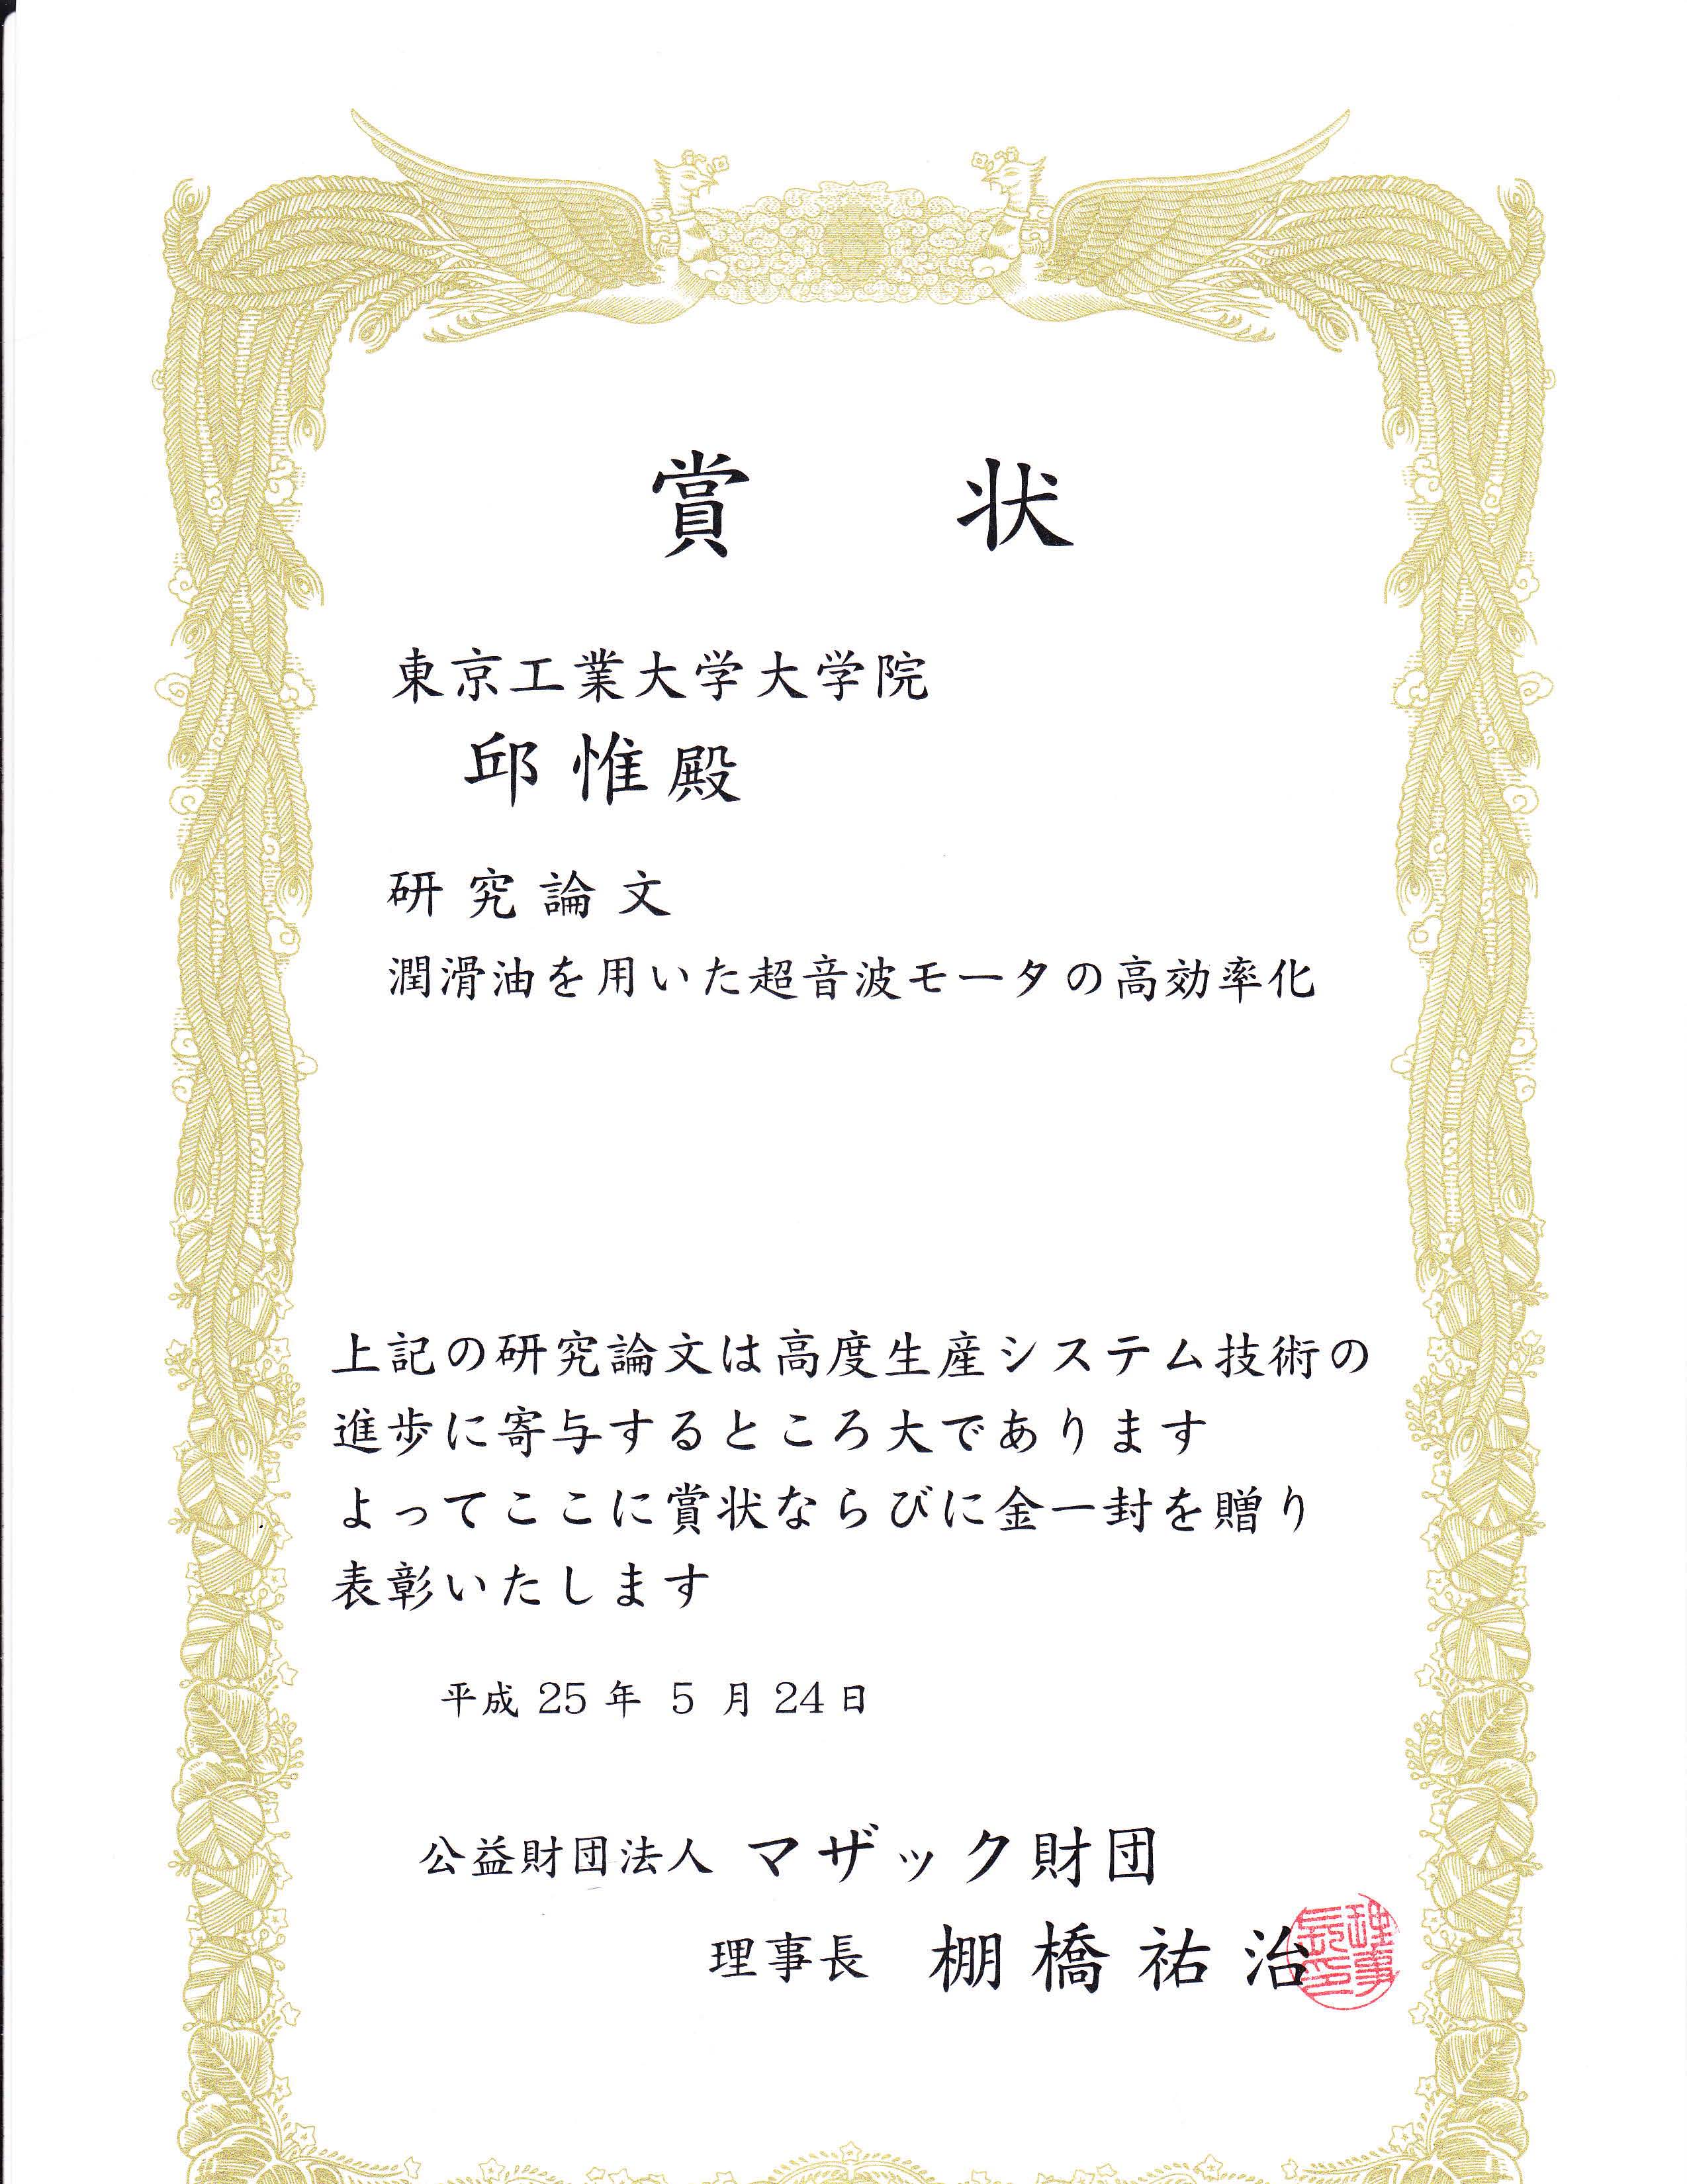 賞状
東京工業大学大学院
邱惟殿
研究論文
潤滑油を用いた超音波モータの高効率化
上記の研究論文は高度生産システム技術の
進歩に寄与するところ大であります
よってここに賞状ならびに金一封を贈り
表彰いたします
平成25年5月24日
公益財団法人 マザック財団
理事長 棚橋祐治
理事長印